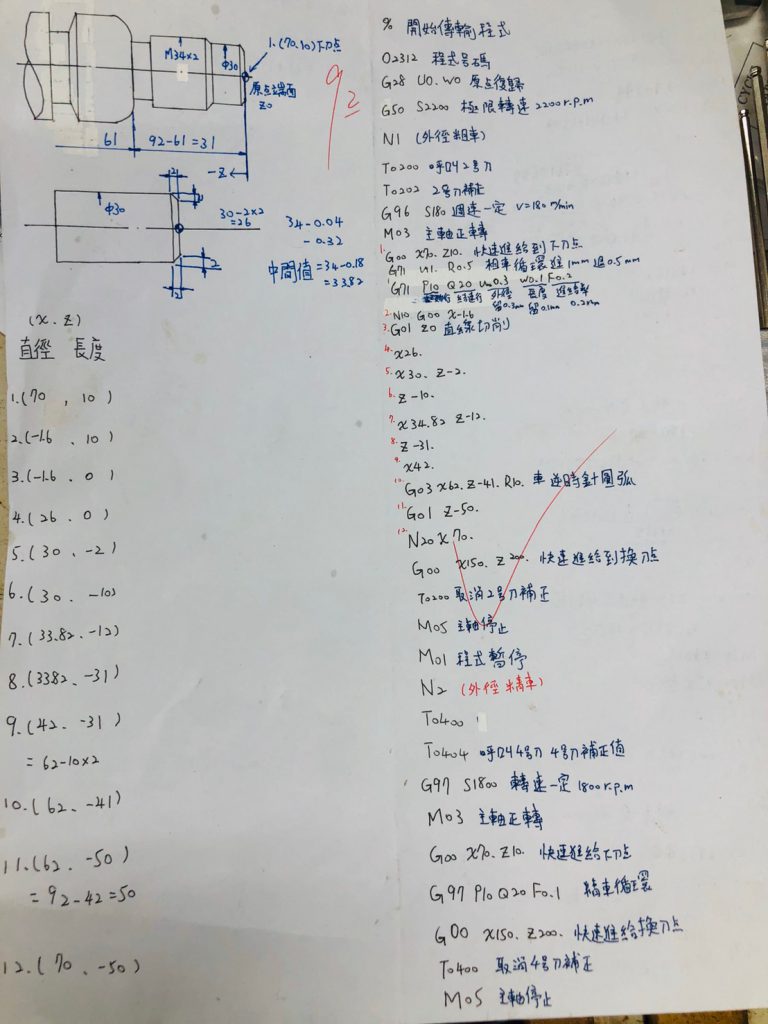 M34×2
Φ30
1.(70,10)下刀点
原点端面
Z0
92
61
92-61=31
-Z
2
Φ30
30-2×2
=26
2
2
34-0.04
-0.32
中間值=34-0.18
=33.82
(X.Z)
直徑 長度
1.(70 , 10)
2.(-1.6 、10)
3.(-1.6 、0)
4.(26 、0)
5.(30 、-2)
6.(30 、-10)
7.(33.82、-12)
8.(3382、-31)
9.(42、-31)
=62-10×2
10.(62、-41)
11.(62、-50)
=92-42=50
12.(70、-50)
% 開始傳輸程式
O2312 程式号碼
G28 U0.W0 原点復歸
G50 S2200 極限轉速 2200r.p.m
N1 (外徑粗車)
T0200 呼叫2号刀
T0202 2号刀補正
G96 S180 週速一定 V=180m/min
M03 主軸正轉
1. G00 X70. Z10. 快速進給到下刀点
G71 U1. R0.5 粗車循環進1mm 退0.5mm
G71 P10 Q20 U0.3 W0.1 F0.2
外徑 長度 進給率
留0.3mm 留0.1mm 0.2mm
2. N10 G00 X-1.6
3. G01 Z0 直線切削
4. X26.
5. X30. Z-2.
6. Z-10.
7. X34.82 Z-12.
8. Z-31.
9. X42.
10. G03 X62. Z-41. R10. 車逆時針圓弧
11. G01 Z-50.
12. N20 X70.
G00 X150. Z200. 快速進給到換刀点
T0200 取消2号刀補正
M05 主軸停止
M01 程式暫停
N2 (外徑精車)
T0400
T0404 呼叫4号刀 4号刀補正值
G97 S1800 轉速一定 1800r.p.m
M03 主軸正轉
G00 X70. Z10. 快速進給下刀点
G97 P10 Q20 F0.1 精車循環
G00 X150. Z200. 快速進給換刀点
T0400 取消4号刀補正
M05 主軸停止